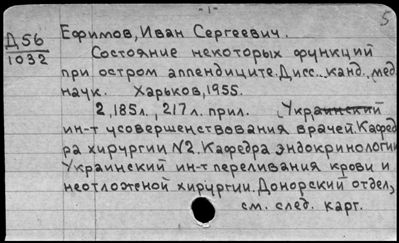 - 1 -
5
Д56
1032
Ефимов, Иван Сергеевич.
Состояние некоторых функций
при остром аппендиците. Дисс... канд. мед.
наук. Харьков, 1955.
2, 185 л., 217 л. прил. Украинский
ин-т усовершенствования врачей. Кафед
ра хирургии №2. Кафедра эндокринологии
Украинский ин-т переливания крови и
неотложеной хирургии. Донорский отдел,
см. след. карт.